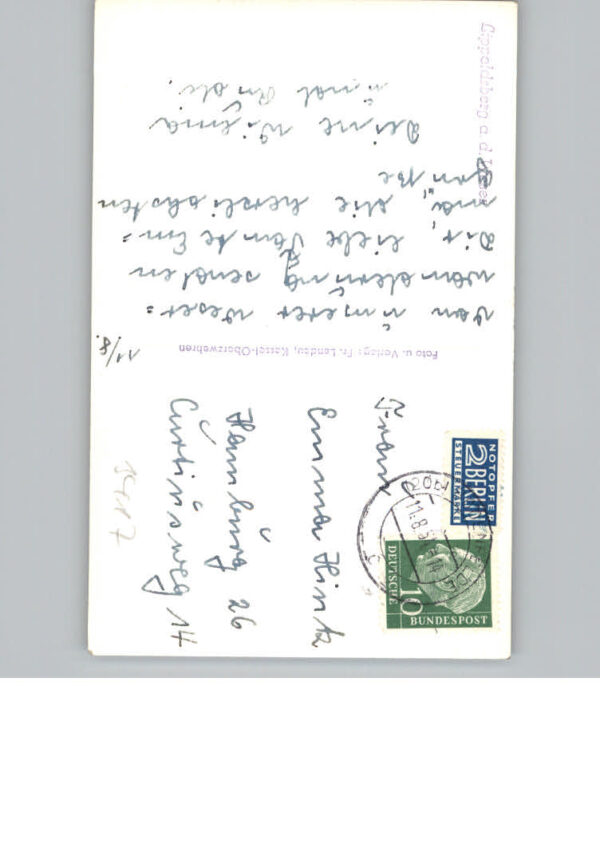 Lippoldsberg a. d. Weser
11/8.
Von unserer Weser=
wanderung senden
Dir, liebe Tante Em=
ma, die herzlichsten
Grüße
Deine Wilma
und
Foto u. Verlag: Fr. Landau, Kassel-Oberzwehren
NOTOPFER
2 BERLIN
STEUERMARKE
DEUTSCHE
BUNDESPOST
10
Frau
Emma Hintz
Hamburg 26
Curtiusweg 14